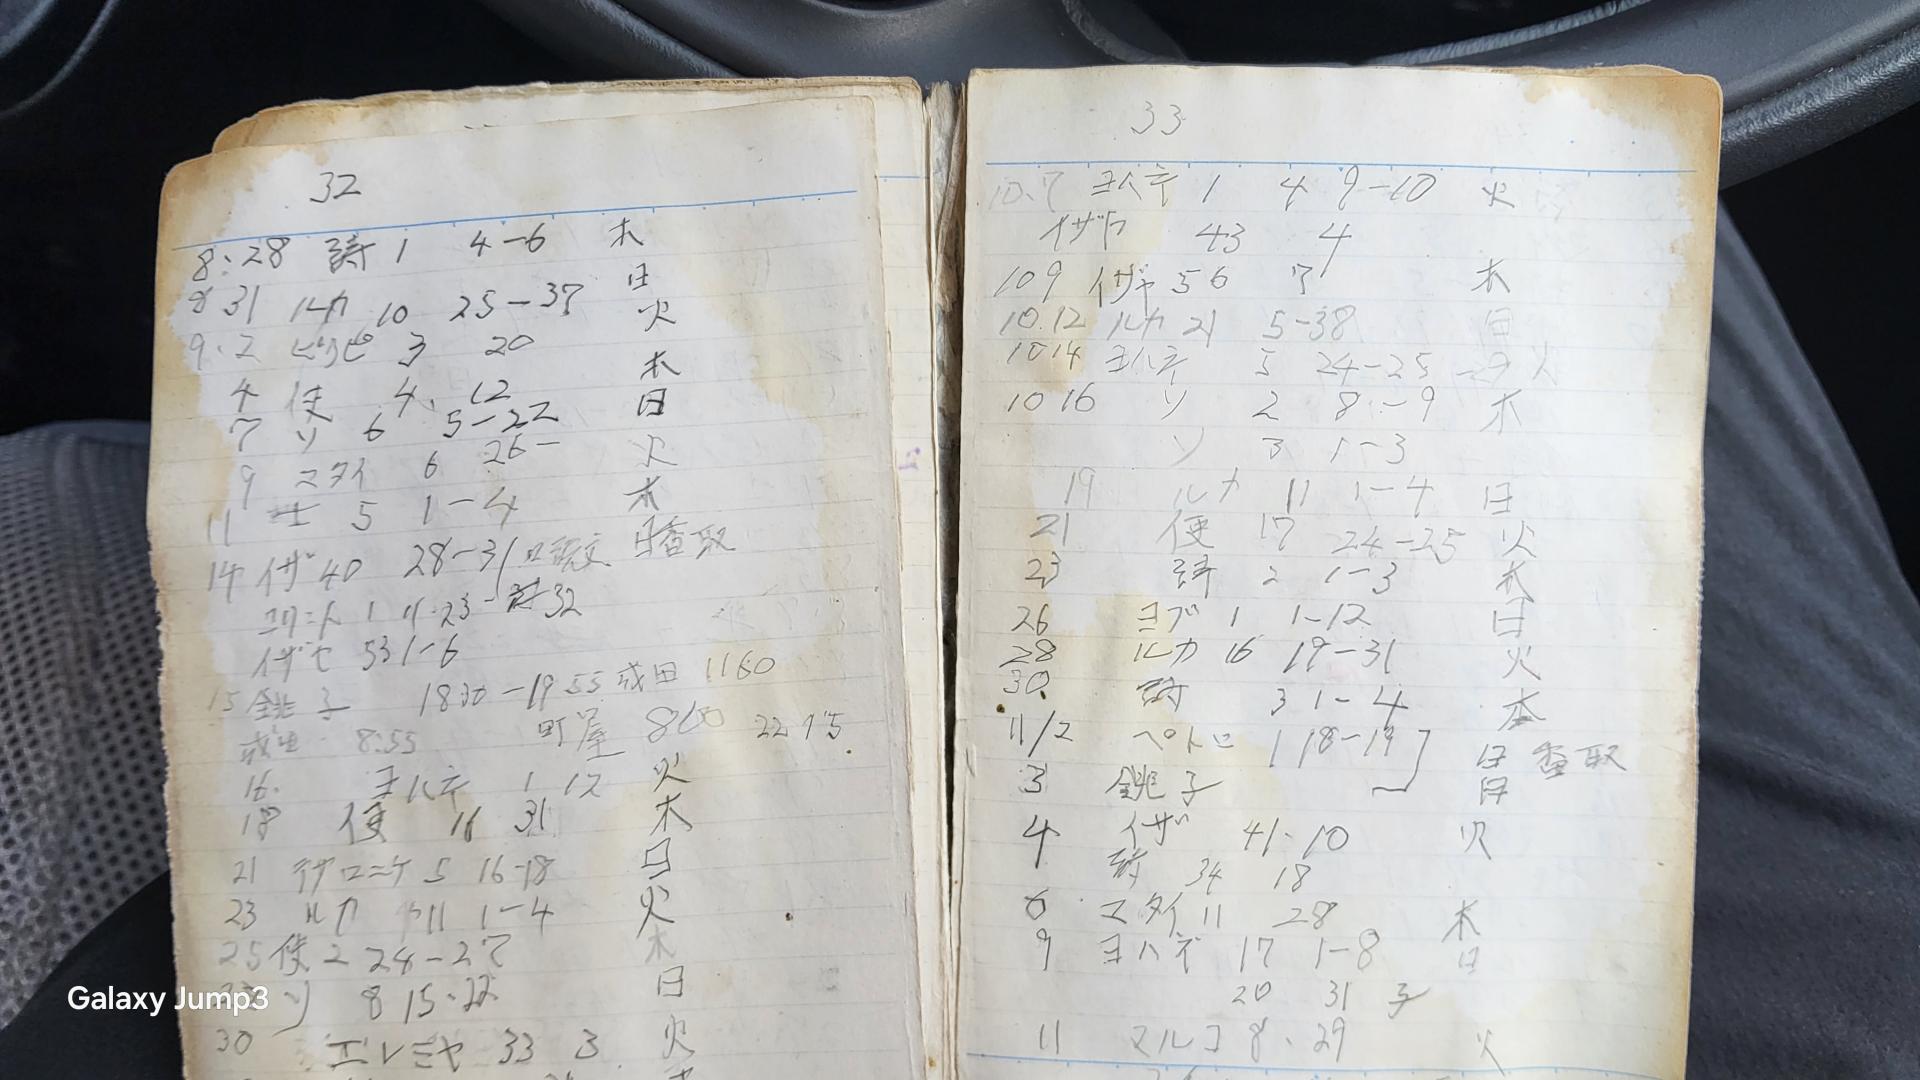 32
8:28 詩 1 4-6 木
8 31 ルカ 10 25-37 日
9.2 ピリピ 3 20 火
4 使 4、12 木
7 ソ 6 5-22 日
9 マタイ 6 26- 火
11 士 5 1-4 木
14 イザ 40 28-31 口語文 日香取
コリント 1 11-23- 詩32
イザヤ 53 1-6
15 銚子 1830-1955 成田 1160
成田 8:55 町屋 860 2215
16. ヨハネ 1 12 火
18 使 16 31 木
21 テサロニケ 5 16-18 日
23 ルカ 11 1-4 火
25 使 2 24-27 木
ソ 8 15-22 日
30 エレミヤ 33 3 火
33
10.7 ヨハネ 1 4 9-10 火
イザヤ 43 4
10 9 イザヤ 56 7 木
10.12 ルカ 21 5-38 日
10 14 ヨハネ 5 24-25 -29 火
10 16 ソ 2 8-9 木
ソ 3 1-3
19 ルカ 11 1-4 日
21 使 17 24-25 火
23 詩 2 1-3 木
26 ヨブ 1 1-12 日
28 ルカ 16 19-31 火
30. 詩 3 1-4 木
11/2 ペトロ 1 18-19 日 香取
3 銚子 月
4 イザ 41-10 火
詩 34 18
6 マタイ 11 28 木
9 ヨハネ 17 1-8 日
20 31 子
11 マルコ 8.29 火
Galaxy Jump3